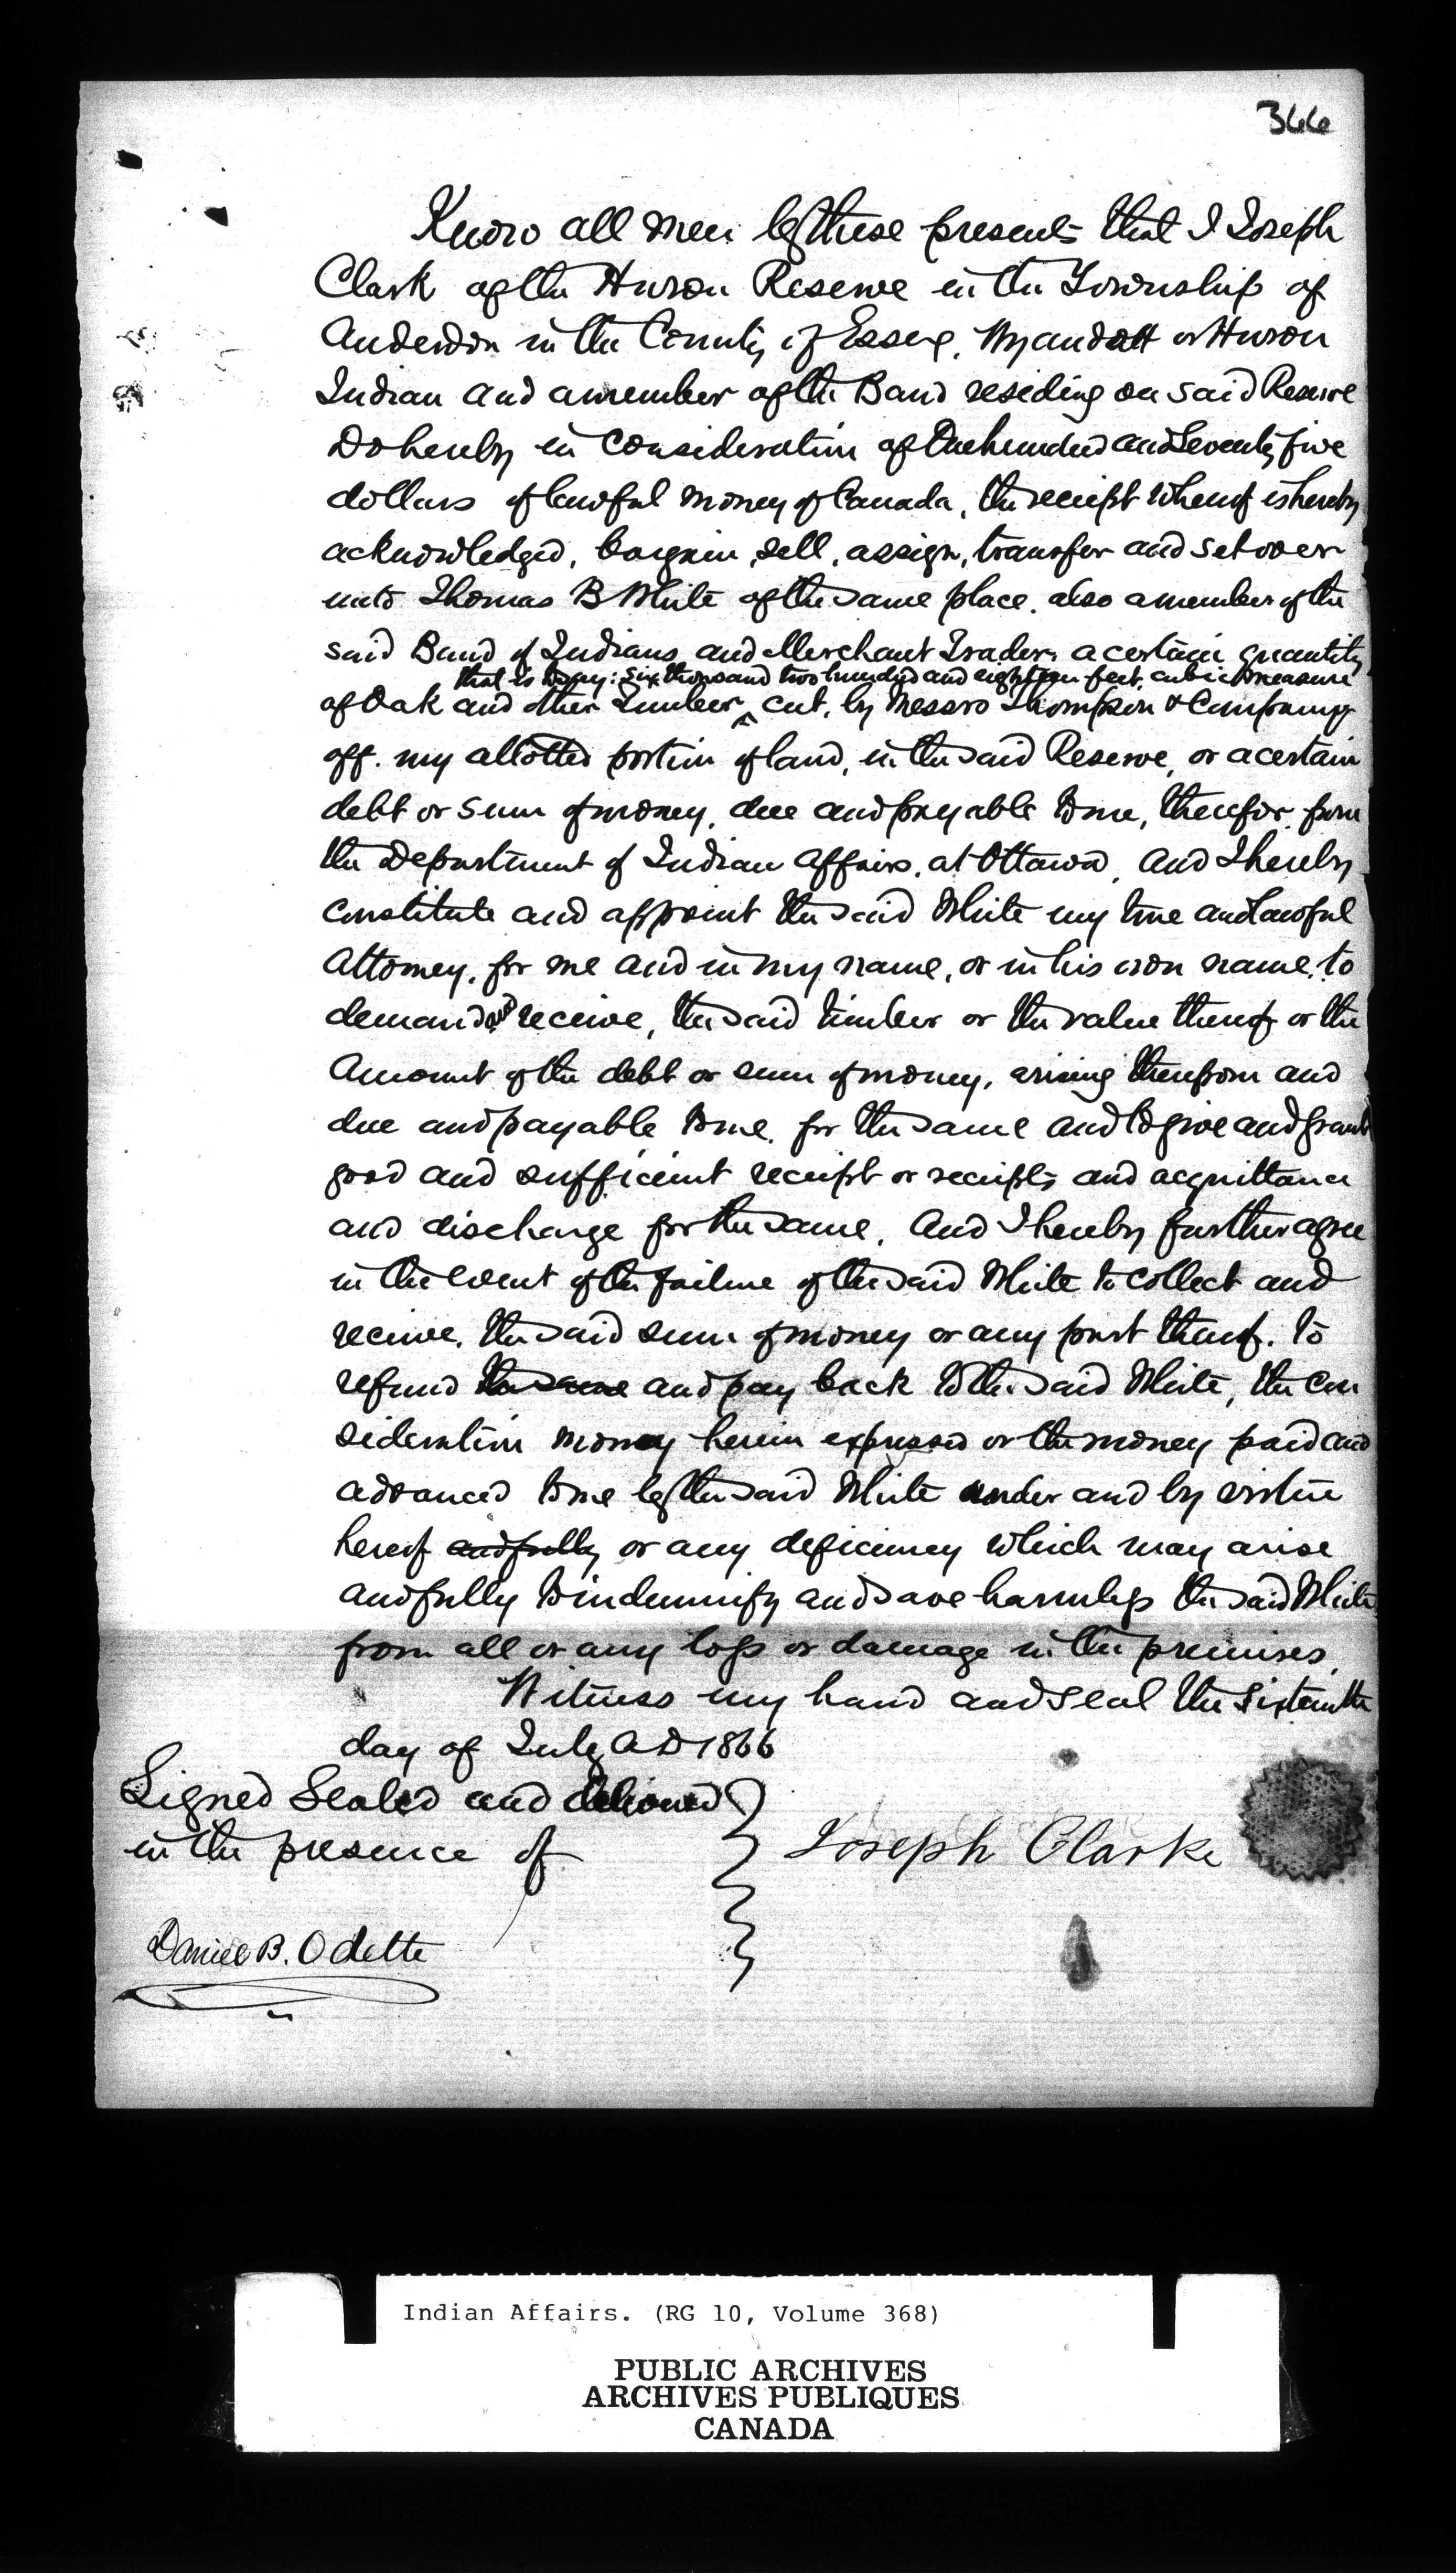 366
Know all men by these presents that I Joseph
Clark of the Huron Reserve in the Township of
Anderdon in the County of Essex, Wyandott or Huron
Indian and a member of the Band residing on said Reserve
Do hereby in consideration of One hundred and Seventy five
dollars of lawful money of Canada, the receipt whereof is hereby
acknowledged, bargain, sell, assign, transfer and set over
unto Thomas B White of the same place, also a member of the
said Band of Indians and Merchant Trader, a certain quantity
that is to say: Six thousand two hundred and eighteen feet, cubic measure
of Oak and other timber ^ cut, by Messrs Thompson & Company
off my allotted portion of land, in the said Reserve, or a certain
debt or sum of money, due and payable to me, therefor from
the Department of Indian Affairs, at Ottawa, And I hereby
constitute and appoint the said White my true and lawful
Attorney, for me and in my name, or in his own name, to
demand and receive, the said timber or the value thereof or the
Amount of the debt or sum of money, arising therefrom and
due and payable to me, for the same and to give and grant
good and sufficient receipt or receipts and acquittance
and discharge for the same, And I hereby further agree
in the event of the failure of the said White to collect and
receive, the said sum of money or any part thereof, to
refund the same and pay back to the said White, the con
sideration money herein expressed or the money paid and
advanced to me by the said White under and by virtue
hereof and fully or any deficiency which may arise
and fully to indemnify and save harmless the said White
from all or any loss or damage in the premises.
Witness my hand and seal the sixteenth
day of July A D 1866
Signed Sealed and delivered
in the presence of
Joseph Clarke
Daniel B. Odette
Indian Affairs. (RG 10, Volume 368)
PUBLIC ARCHIVES
ARCHIVES PUBLIQUES
CANADA